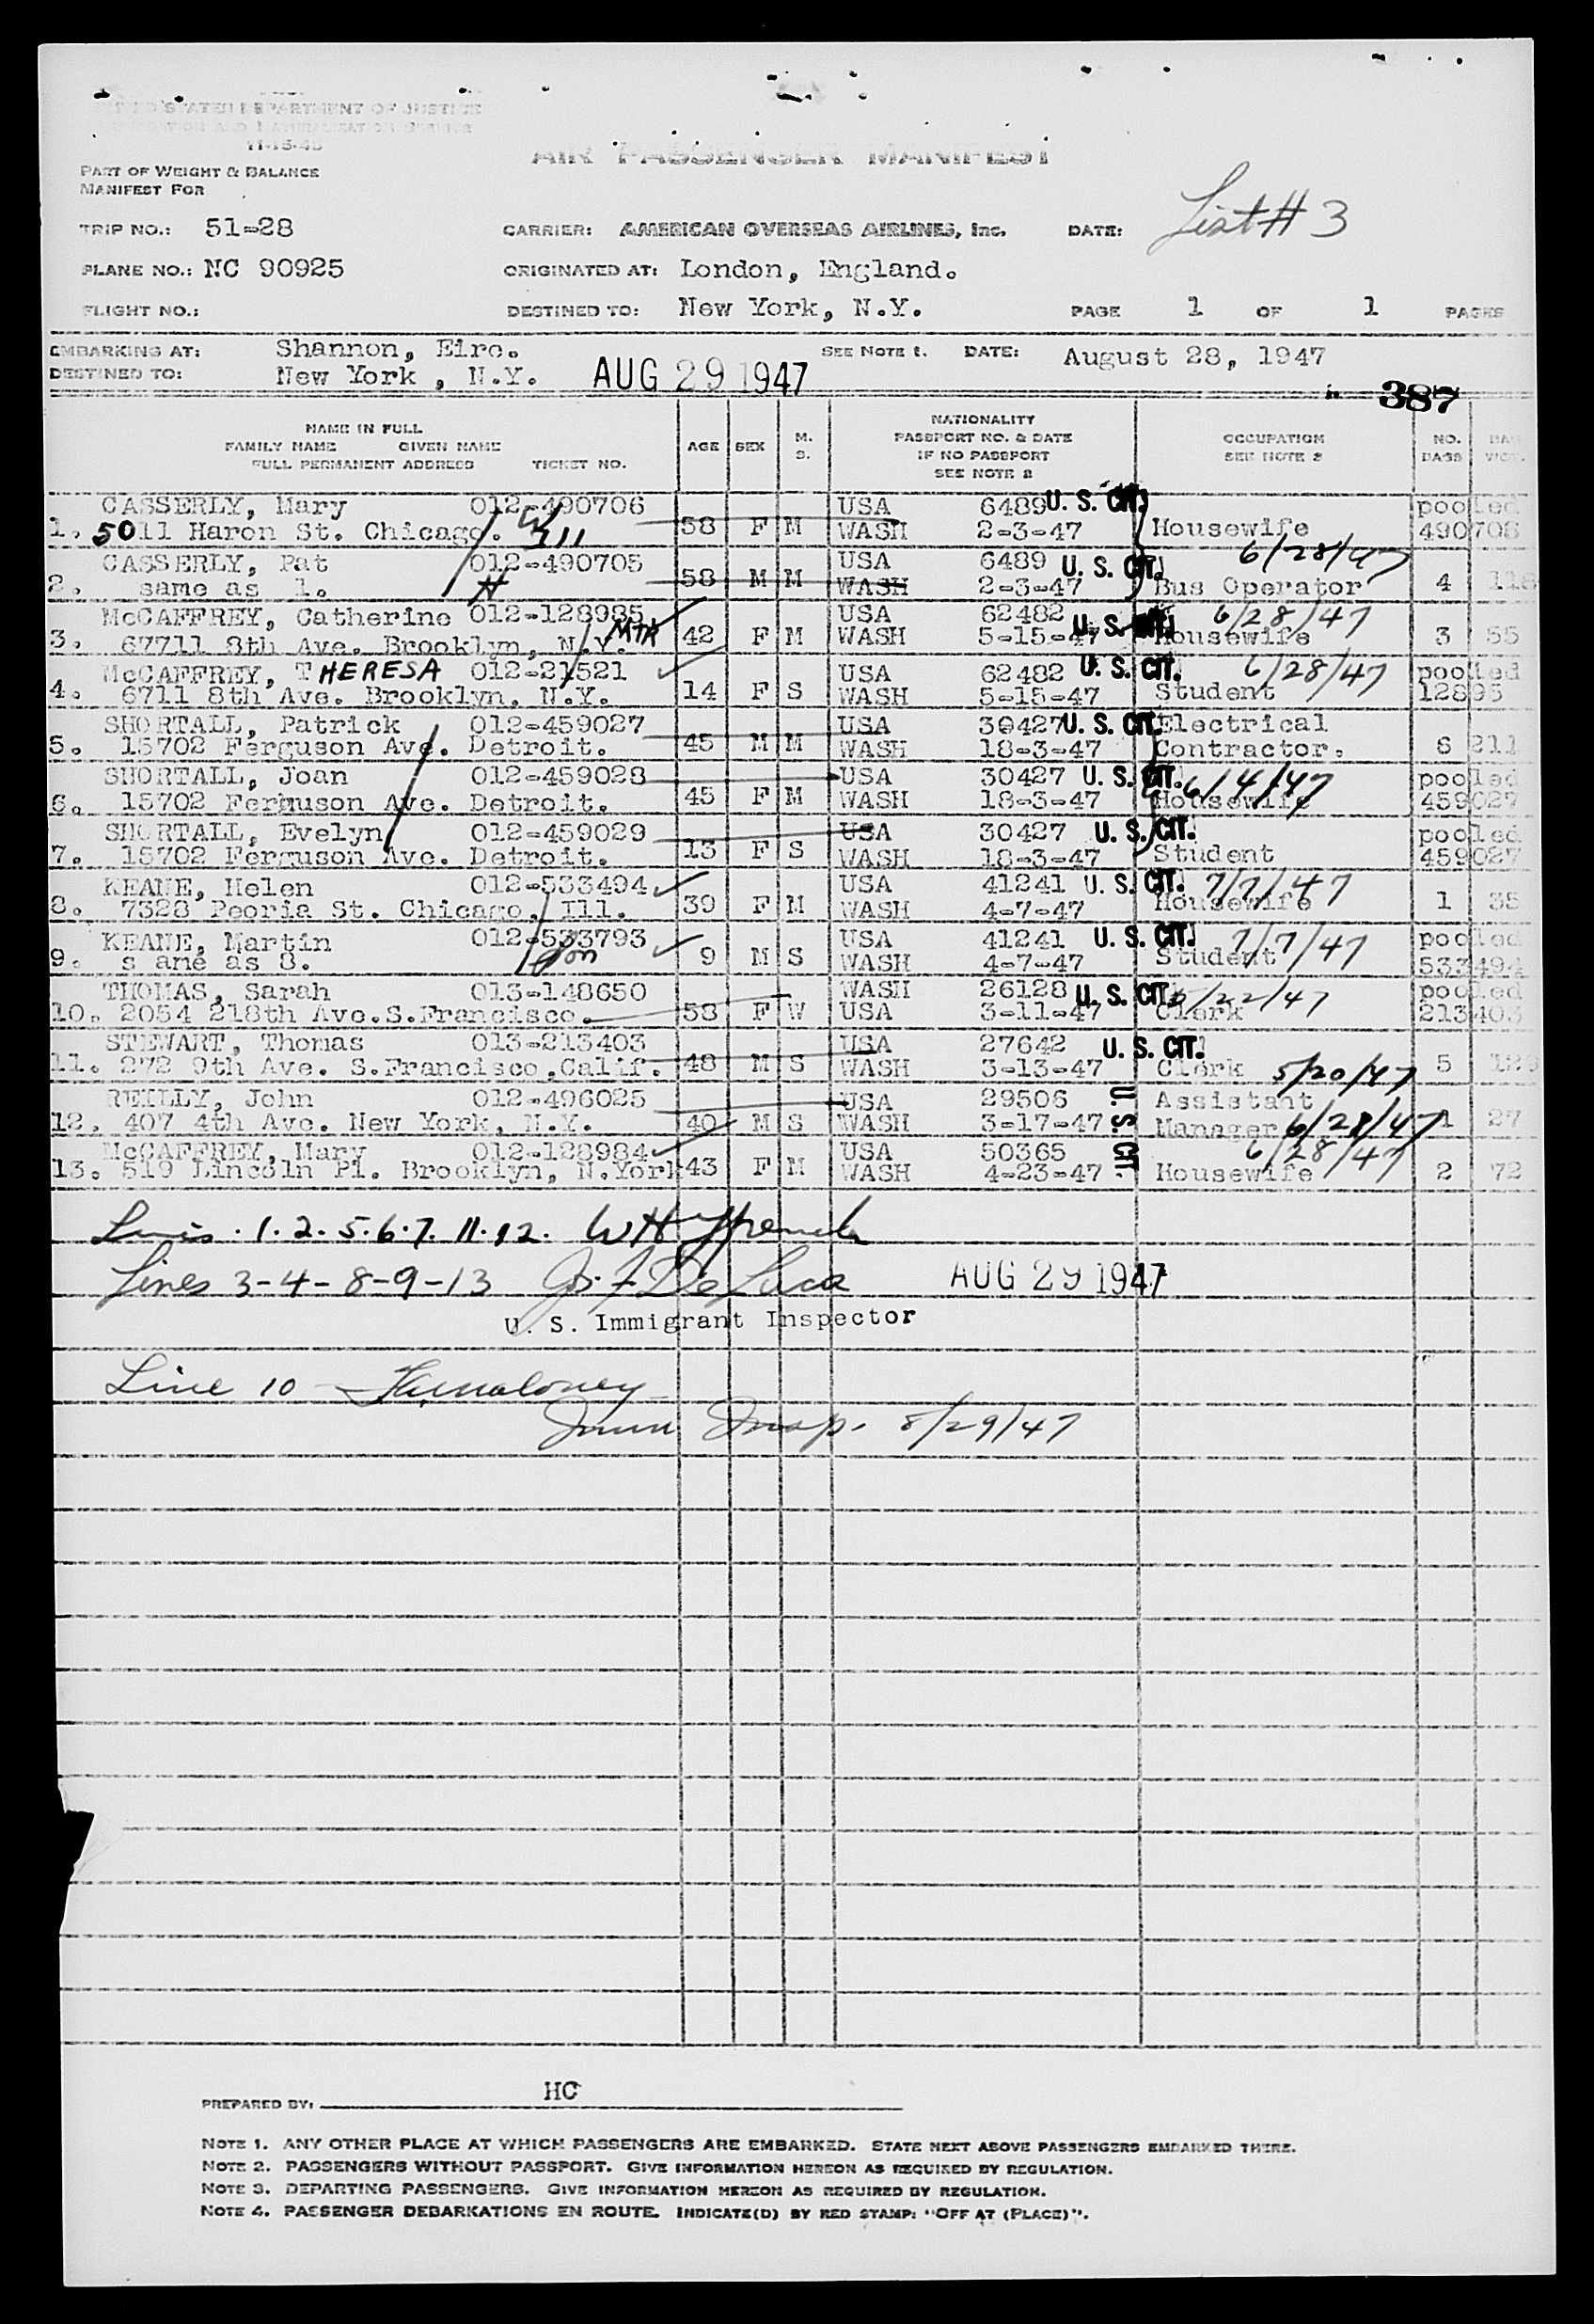 DEPARTMENT OF JUSTICE
11-15-45
AIR PASSENGER MANIFEST
PART OF WEIGHT & BALANCE
MANIFEST FOR
List # 3
TRIP NO.: 51-28 CARRIER: AMERICAN OVERSEAS AIRLINES, Inc. DATE:
PLANE NO.: NC 90925 ORIGINATED AT: London, England.
FLIGHT NO.: DESTINED TO: New York, N.Y. PAGE 1 OF 1 PAGES
EMBARKING AT: Shannon, Eire. SEE NOTE 1. DATE: August 28, 1947
DESTINED TO: New York , N.Y. AUG 29 1947
387
NAME IN FULL
FAMILY NAME GIVEN NAME
FULL PERMANENT ADDRESS TICKET NO.
AGE SEX M. S.
NATIONALITY
PASSPORT NO. & DATE
IF NO PASSPORT
SEE NOTE 2
OCCUPATION
SEE NOTE 3
NO. BAGS
CASSERLY, Mary 012-490706 USA 6489 U. S. CIT. pooled
1. 5011 Haron St. Chicago. 58 F M WASH 2-3-47 Housewife 490706
CASSERLY, Pat 012-490705 USA 6489 U. S. CIT. 6/28/47
2. same as 1. H 58 M M WASH 2-3-47 Bus Operator 4 118
McCAFFREY, Catherine 012-128985 USA 62482 U. S. CIT. 6/28/47
3. 67711 8th Ave. Brooklyn, N.Y. MTR 42 F M WASH 5-15-47 Housewife 3 55
McCAFFREY, THERESA 012-21521 USA 62482 U. S. CIT. 6/28/47 pooled
4. 6711 8th Ave. Brooklyn, N.Y. 14 F S WASH 5-15-47 Student 12895
SHORTALL, Patrick 012-459027 USA 30427 U. S. CIT. Electrical
5. 15702 Ferguson Ave. Detroit. 45 M M WASH 18-3-47 Contractor. 6 211
SHORTALL, Joan 012-459028 USA 30427 U. S. CIT. 6/4/47 pooled
6. 15702 Ferguson Ave. Detroit. 45 F M WASH 18-3-47 Housewife 459027
SHORTALL, Evelyn 012-459029 USA 30427 U. S. CIT. pooled
7. 15702 Ferguson Ave. Detroit. 13 F S WASH 18-3-47 Student 459027
KEANE, Helen 012-533494 USA 41241 U. S. CIT. 7/7/47
8. 7328 Peoria St. Chicago, Ill. 39 F M WASH 4-7-47 Housewife 1 38
KEANE, Martin 012-533793 USA 41241 U. S. CIT. 7/7/47 pooled
9. s ame as 8. Son 9 M S WASH 4-7-47 Student 533494
THOMAS, Sarah 013-148650 WASH 26128 U. S. CIT. 5/22/47 pooled
10. 2054 218th Ave.S.Francisco. 58 F W USA 3-11-47 Clerk 213403
STEWART, Thomas 013-213403 USA 27642 U. S. CIT.
11. 272 9th Ave. S.Francisco,Calif. 48 M S WASH 3-13-47 Clerk 5/20/47 5
REILLY, John 012-496025 USA 29506 U. S. CIT. Assistant
12. 407 4th Ave. New York, N.Y. 40 M S WASH 3-17-47 Manager 6/28/47 1 27
McCAFFREY, Mary 012-128984 USA 50365 6/28/47
13. 519 Lincoln Pl. Brooklyn, N.York 43 F M WASH 4-23-47 Housewife 2 72
Lines . 1. 2. 5. 6. 7. 11. 12.
Lines 3-4-8-9-13 Jos. F De Luca AUG 29 1947
U. S. Immigrant Inspector
Line 10 - Maloney
Imm Insp. 8/29/47
PREPARED BY: HC
NOTE 1. ANY OTHER PLACE AT WHICH PASSENGERS ARE EMBARKED. STATE NEXT ABOVE PASSENGERS EMBARKED THERE.
NOTE 2. PASSENGERS WITHOUT PASSPORT. GIVE INFORMATION HEREON AS REQUIRED BY REGULATION.
NOTE 3. DEPARTING PASSENGERS. GIVE INFORMATION HEREON AS REQUIRED BY REGULATION.
NOTE 4. PASSENGER DEBARKATIONS EN ROUTE. INDICATE(D) BY RED STAMP: "OFF AT (PLACE)".